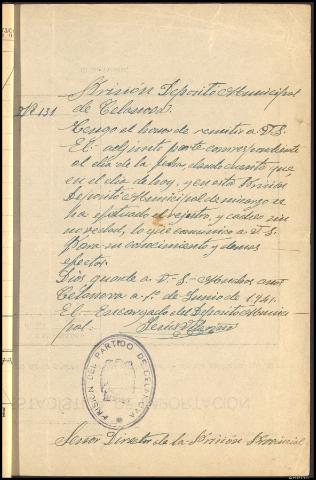 Prisión Deposito Municipal
Nº 131 de Celanova.
Tengo el honor de remitir a V.S.
El adjunto parte correspondiente
al día de la fecha, dando cuenta que
en el día de hoy, y en esta Prisión
Deposito Municipal de mi cargo se
ha efectuado el registro, y cacheo sin
novedad, lo que comunico a V.S.
para su conocimiento y demas
efectos.
Dios guarde a V.-S- Muchos
Celanova a 1º de Junio de 1941.
El- Encargado del Deposito Munici
pal.
PRISION DEL PARTIDO DE CELANOVA
Señor Director de la Prisión Provincial